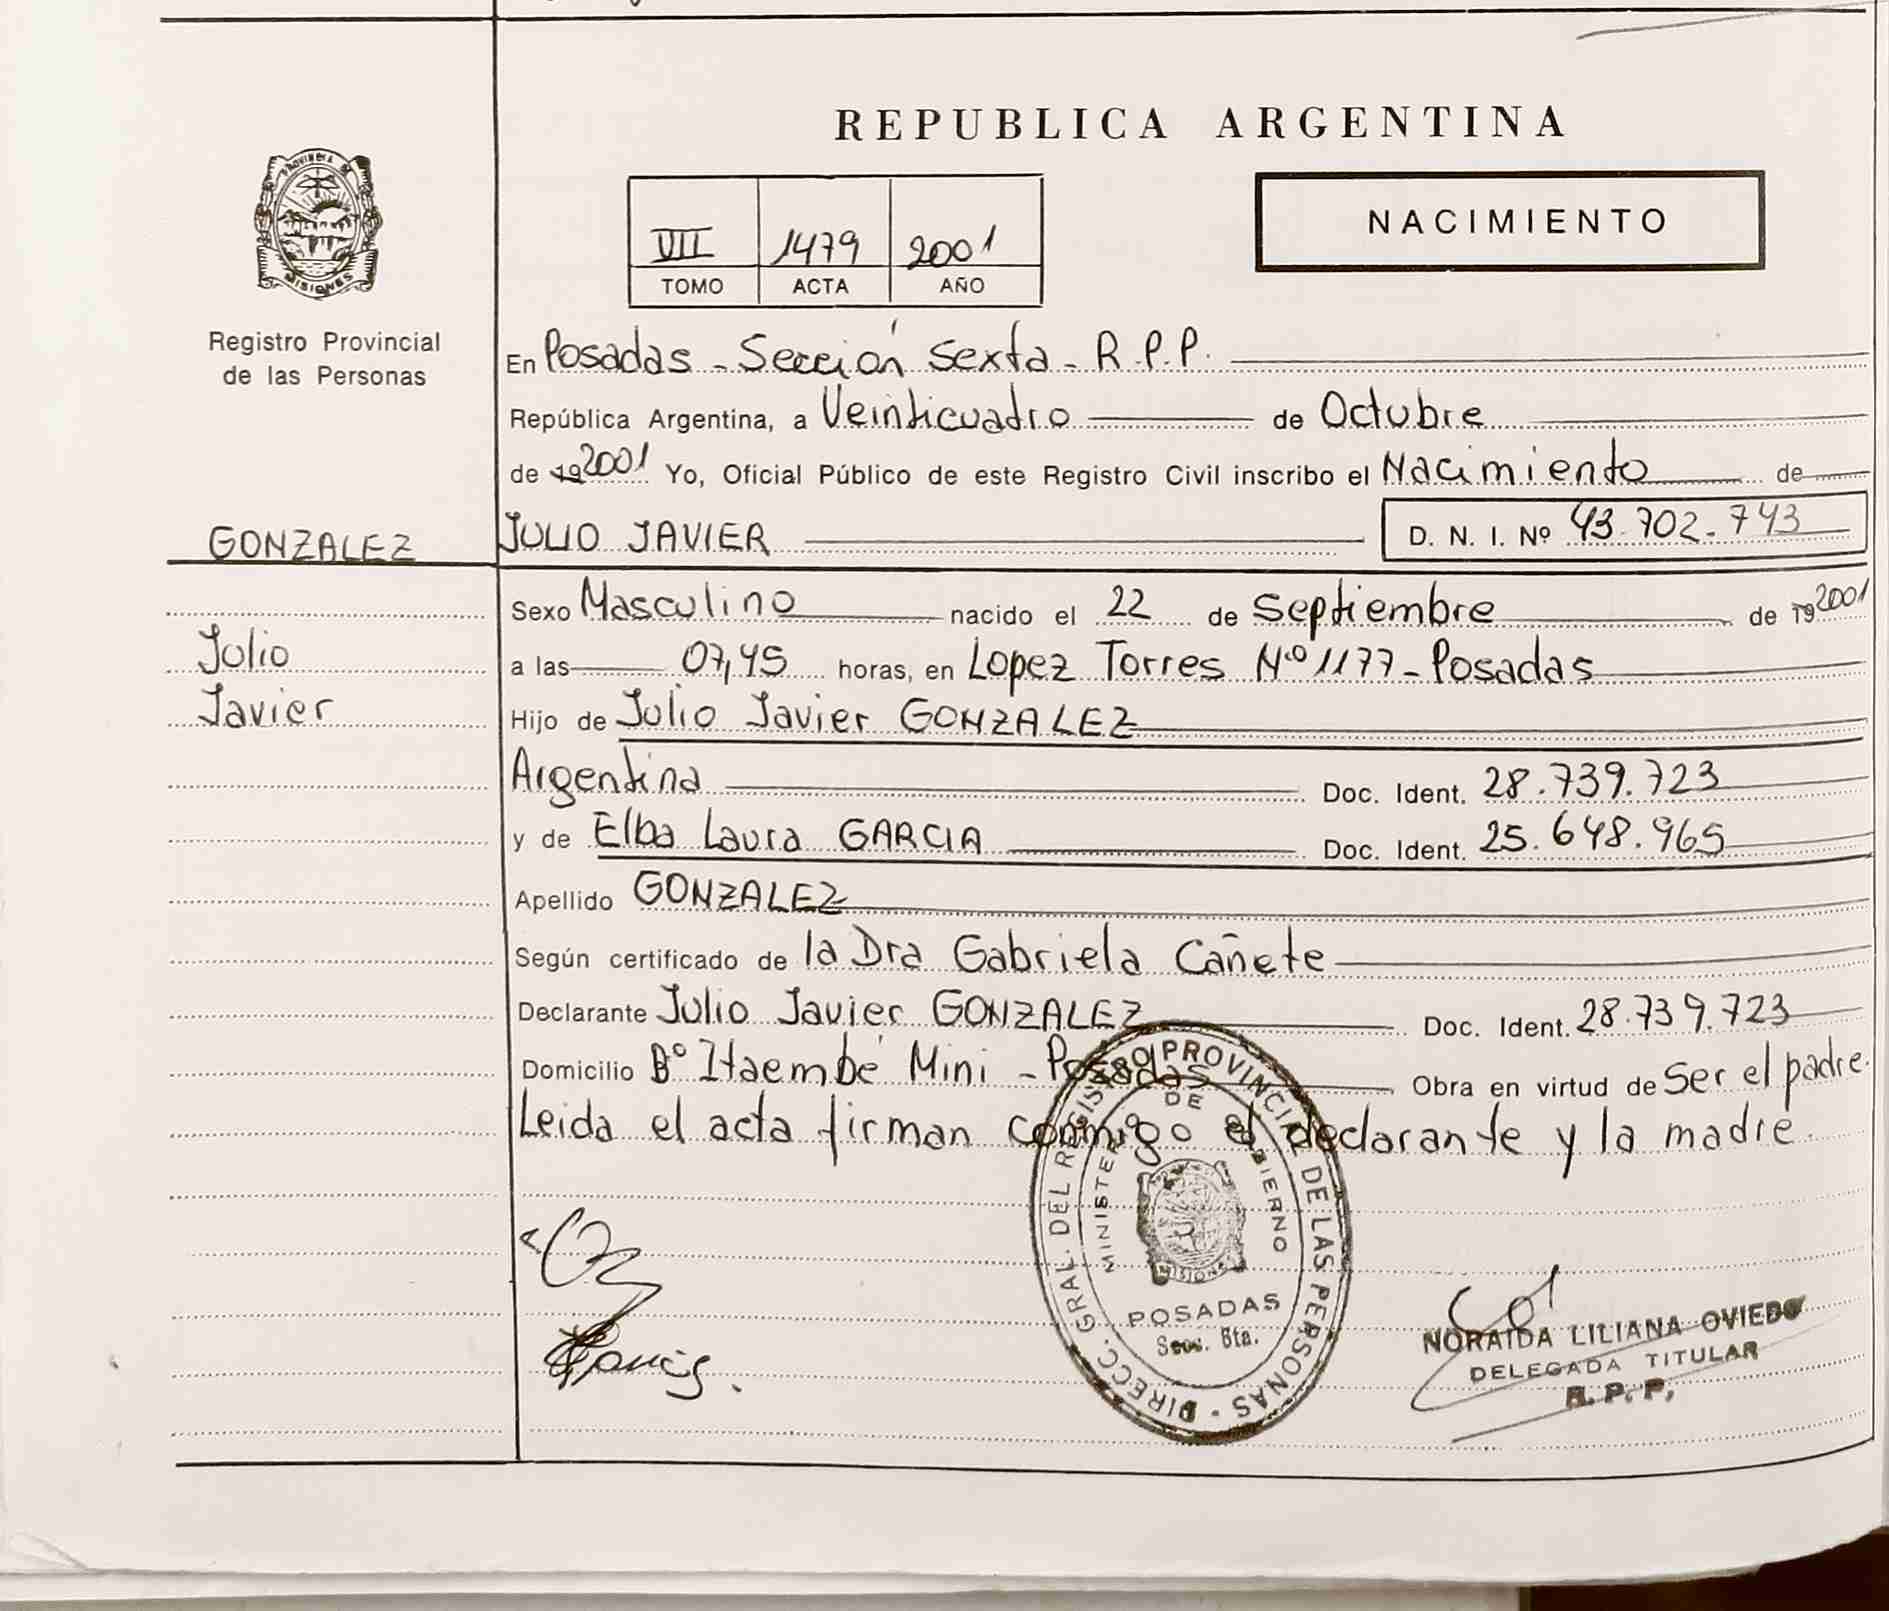 REPUBLICA ARGENTINA
PROVINCIA DE
MISIONES
Registro Provincial
de las Personas
VII 1479 2001
TOMO ACTA AÑO
NACIMIENTO
En Posadas - Sección Sexta - R.P.P.
República Argentina, a Veinticuatro de Octubre
de 19 2001 Yo, Oficial Público de este Registro Civil inscribo el Nacimiento de
GONZALEZ JULIO JAVIER D. N. I. Nº 43.702.743
Sexo Masculino nacido el 22 de Septiembre de 19 2001
Julio
Javier
a las 07,45 horas, en Lopez Torres Nº 1177 - Posadas
Hijo de Julio Javier GONZALEZ
Argentina Doc. Ident. 28.739.723
y de Elba Laura GARCIA Doc. Ident. 25.648.965
Apellido GONZALEZ
Según certificado de la Dra Gabriela Cañete
Declarante Julio Javier GONZALEZ Doc. Ident. 28.739.723
Domicilio Bº Itaembé Mini - Posadas Obra en virtud de Ser el padre.
Leida el acta firman conmigo el declarante y la madre.
DIRECC. GRAL. DEL REGISTRO PROVINCIAL DE LAS PERSONAS
MINISTERIO DE GOBIERNO
MISIONES
POSADAS
Secc. 6ta.
NORAIDA LILIANA OVIEDO
DELEGADA TITULAR
R. P. P.